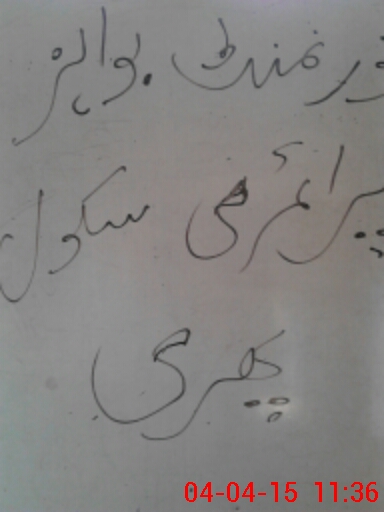 ورنمنٹ بوائز
پرائمری سکول
پھری
04-04-15 11:36